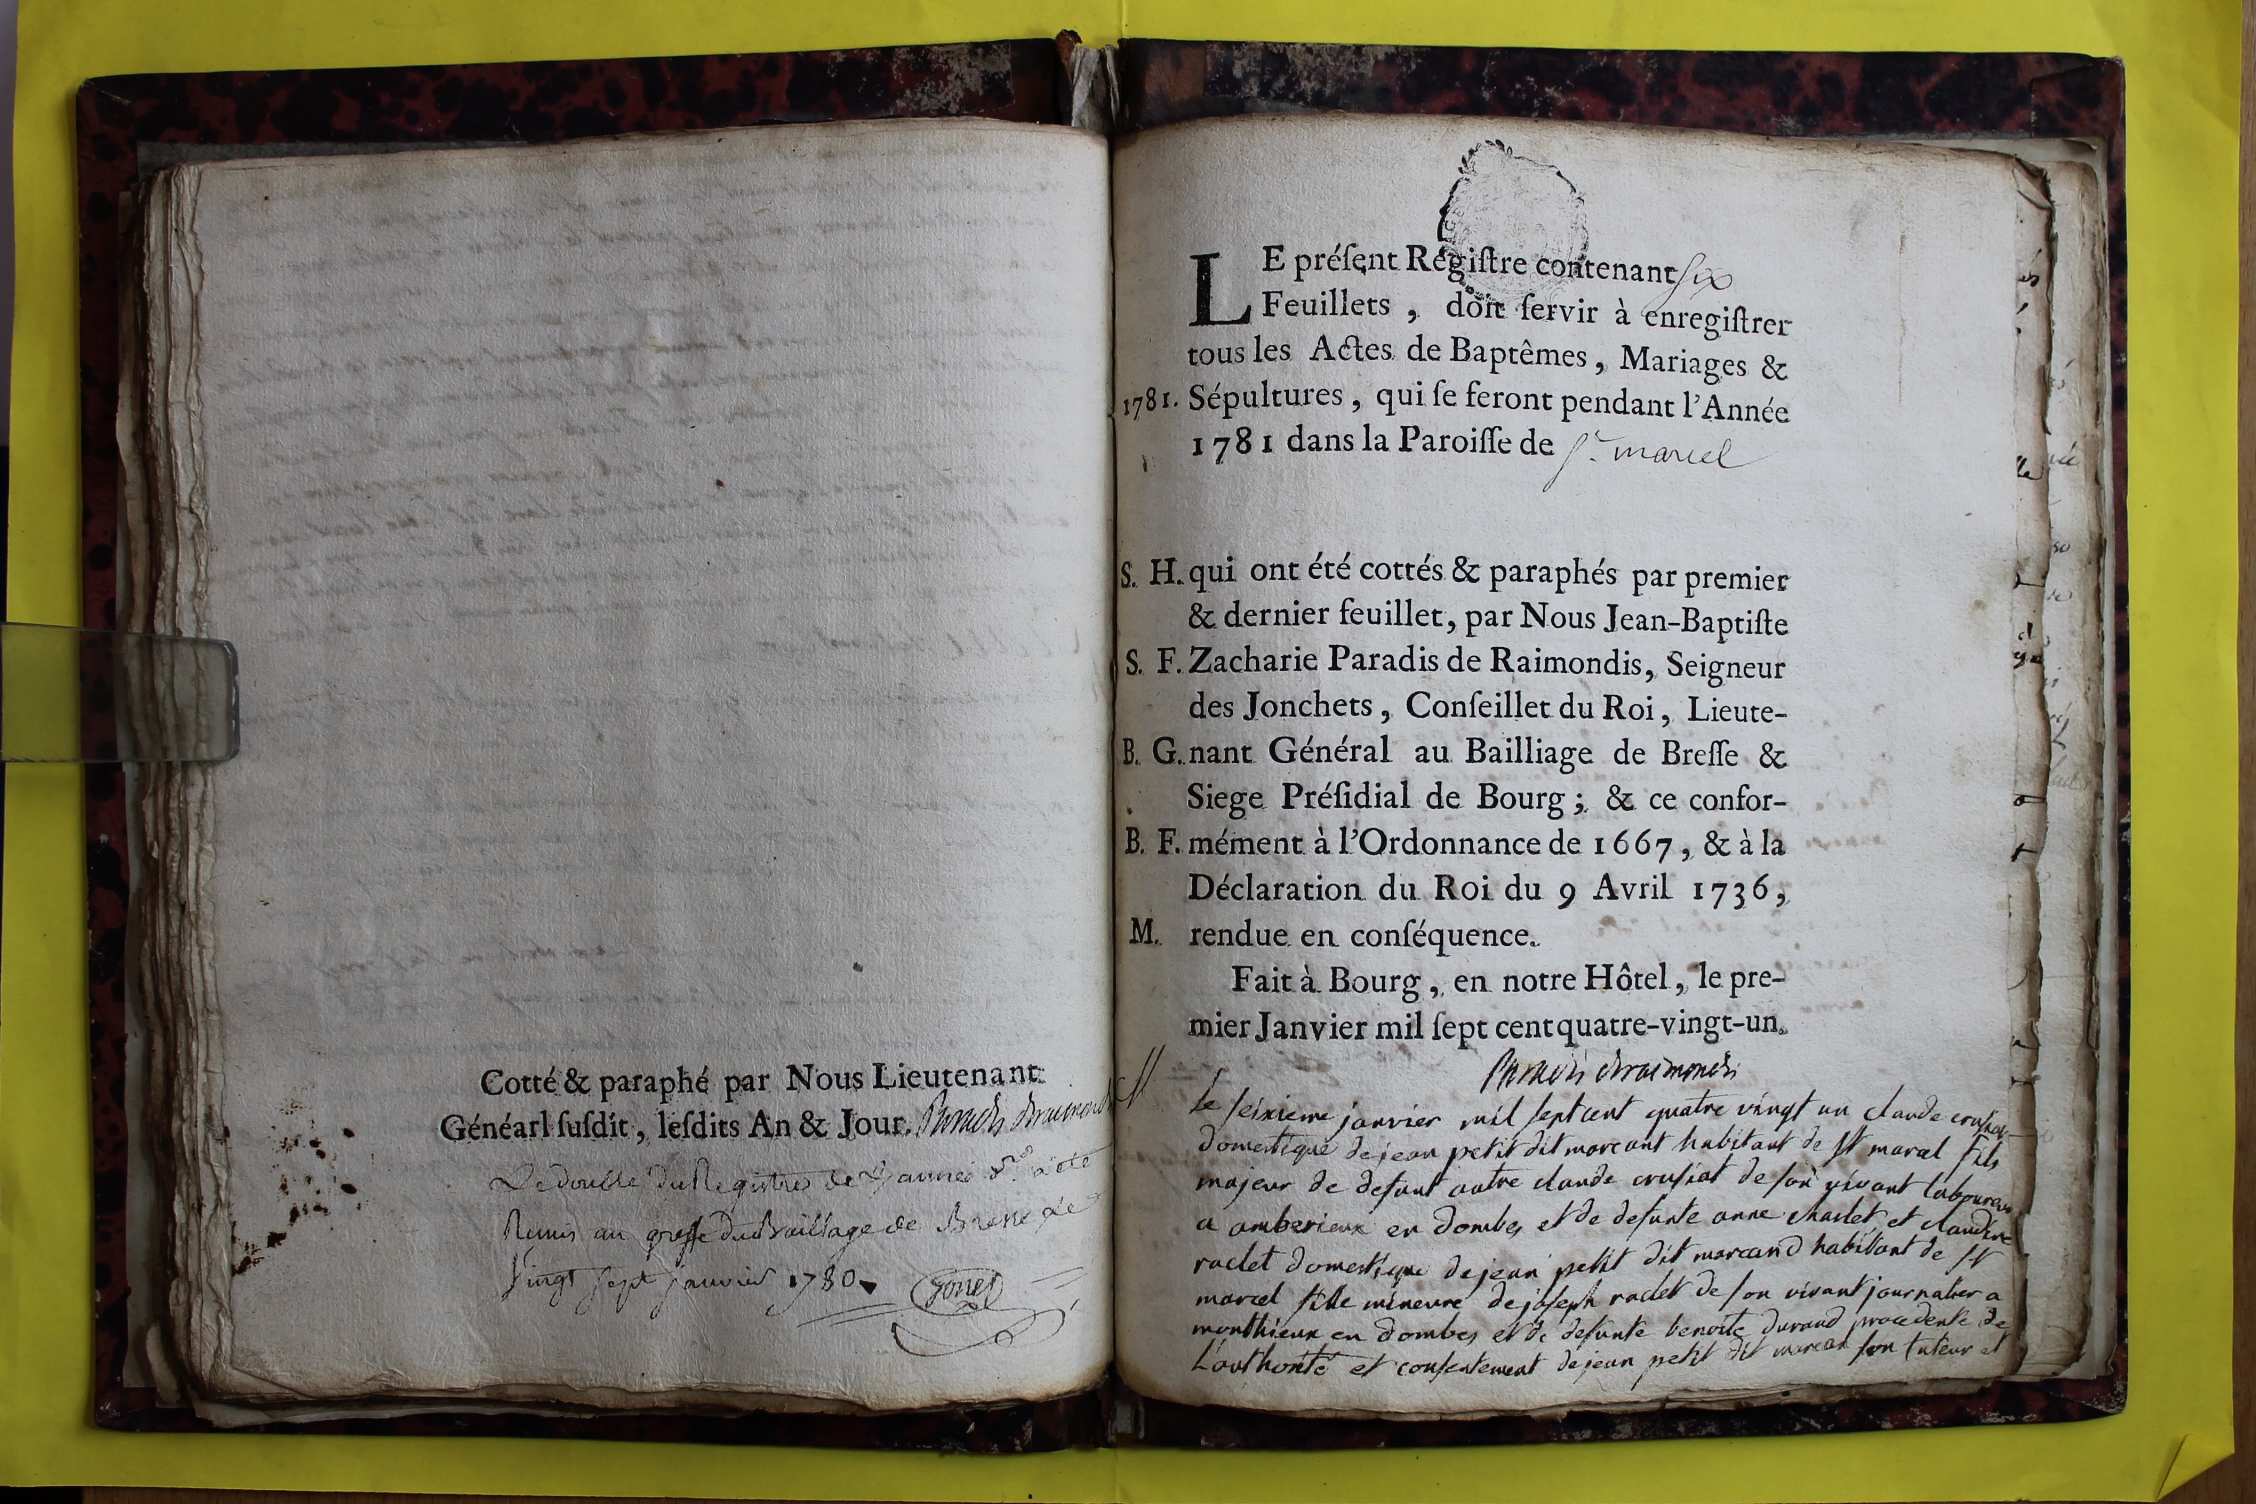 Cotté & paraphé par Nous Lieutenant
Généarl ſuſdit, leſdits An & Jour. Paradis deraimondis
Le double du Registre de L'année d.re a été
Remis au greffe du Bailliage de Bresse Le
Vingt sept janvier 1780.
LE préſent Régiſtre contenant six
Feuillets, doit ſervir à enregiſtrer
tous les Actes de Baptêmes, Mariages &
1781. Sépultures, qui ſe feront pendant l'Année
1781 dans la Paroiſſe de St. marcel
S. H. qui ont été cottés & paraphés par premier
& dernier feuillet, par Nous Jean-Baptiſte
S. F. Zacharie Paradis de Raimondis, Seigneur
des Jonchets, Conſeillet du Roi, Lieute-
B. G. nant Général au Bailliage de Breſſe &
Siege Préſidial de Bourg; & ce confor-
B. F. mément à l'Ordonnance de 1667, & à la
Déclaration du Roi du 9 Avril 1736,
M. rendue en conſéquence.
Fait à Bourg, en notre Hôtel, le pre-
mier Janvier mil ſept cent quatre-vingt-un.
Paradis deraimondis
M le seixieme janvier mil sept cent quatre vingt un claude crusiat
domestique de jean petit dit marcant habitant de st marcel fils
majeur de defunt autre claude crusiat de son vivant laboureur
a amberieux en dombes et de defunte anne charlet et claudine
raclet domestique de jean petit dit marcand habitant de st
marcel fille mineure de joseph raclet de son vivant journalier a
monthieux en dombes et de defunte benoite durand procedente de
L'authorité et consentement de jean petit dit marcan son tuteur et